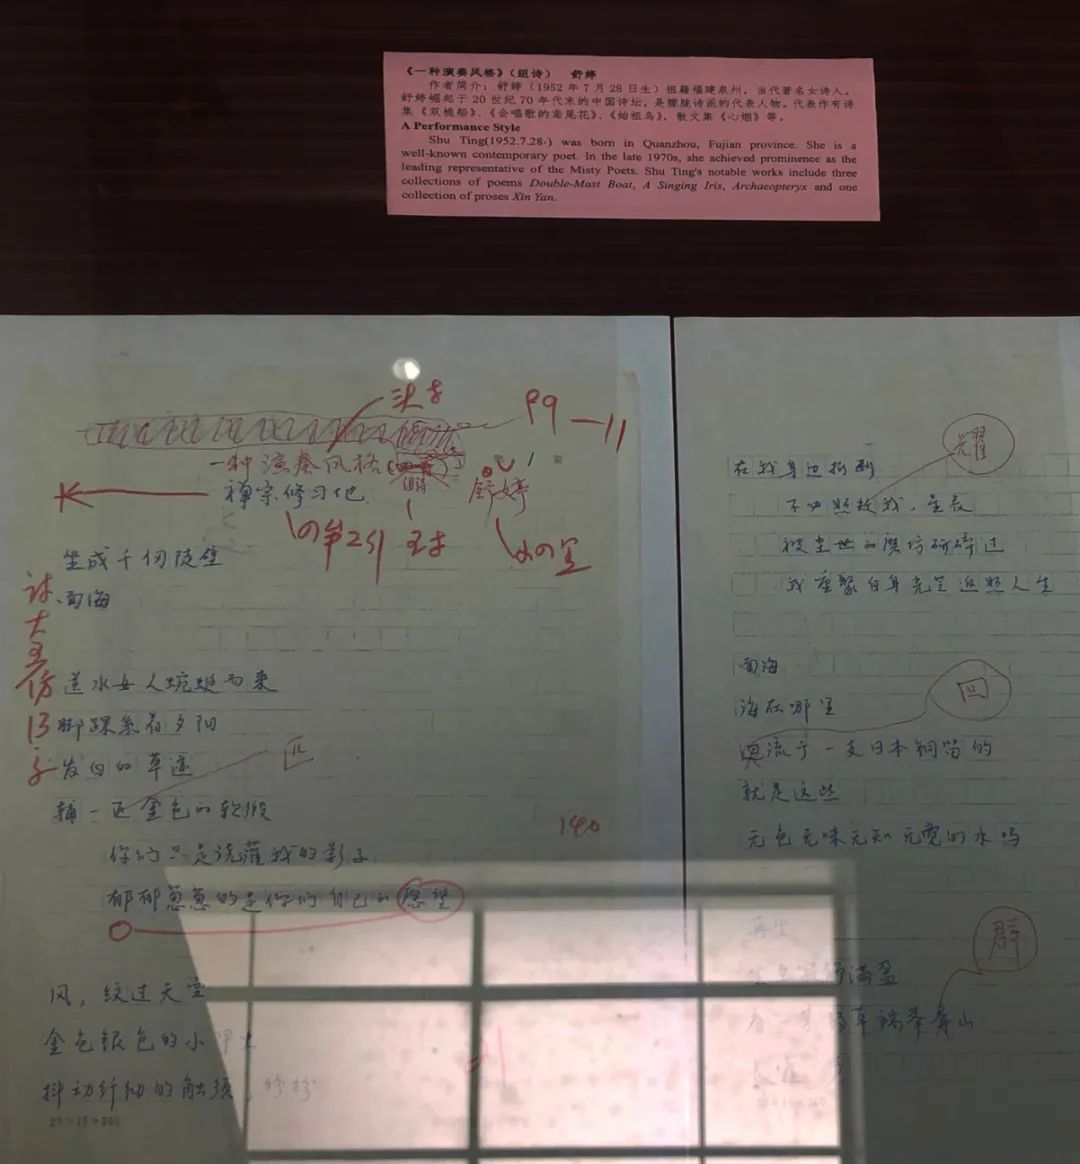 《一种演奏风格》(组诗) 舒婷
作者简介：舒婷（1952 年 7 月 28 日生）祖籍福建泉州，当代著名女诗人。
舒婷崛起于 20 世纪 70 年代末的中国诗坛，是朦胧诗派的代表人物。代表作有诗
集《双桅船》、《会唱歌的鸢尾花》、《始祖鸟》，散文集《心烟》等。
A Performance Style
Shu Ting(1952.7.28-) was born in Quanzhou, Fujian province. She is a
well-known contemporary poet. In the late 1970s, she achieved prominence as the
leading representative of the Misty Poets. Shu Ting's notable works include three
collections of poems Double-Mast Boat, A Singing Iris, Archaeopteryx and one
collection of proses Xin Yan.
P9—11
一种演奏风格
组诗
舒婷
禅宗修习地
坐成千仞陡壁
面海
送水女人蜿蜒而来
脚踝系着夕阳
发白的草迹
铺一匹金色的软缎
匹
140
你们只是浇灌我的影子
郁郁葱葱的是你们自己的愿望
风，纹过天空
金色银色的小甲虫
抖动纤细的触须，纷纷
20×15=300
在我身边折断
耀
不必照耀我，星辰
被尘世的磨坊研碎过
我重聚自身光芒返照人生
面海
海在哪里
回
回流于一支日本铜笛的
就是这些
无色无味无知无觉的水吗
再坐
群
满盈
群山